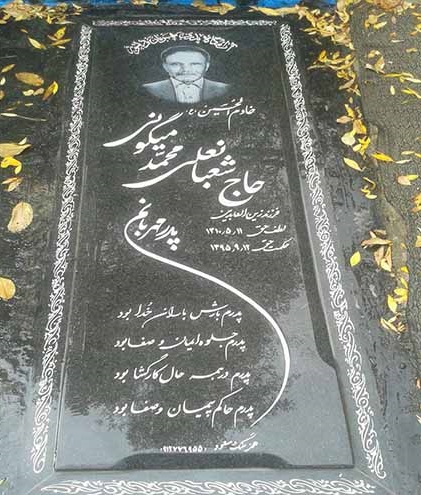 خادم الحسین (ع)
حاج شعبانعلی محمد میگونی
فرزند زین العابدین
لطف حق ۱۳۱۰،۵،۱۱
حکمت حق ۱۳۹۵،۹،۱۲
پدر مهربانم
پدرم بارش باران خدا بود
پدرم جلوه ایمان و صفا بود
پدرم در همه حال کارگشا بود
پدرم حاکم پیمان و وفا بود
هنر سنگ مسعود ۰۹۱۲۷۷۶۹۵۵۰